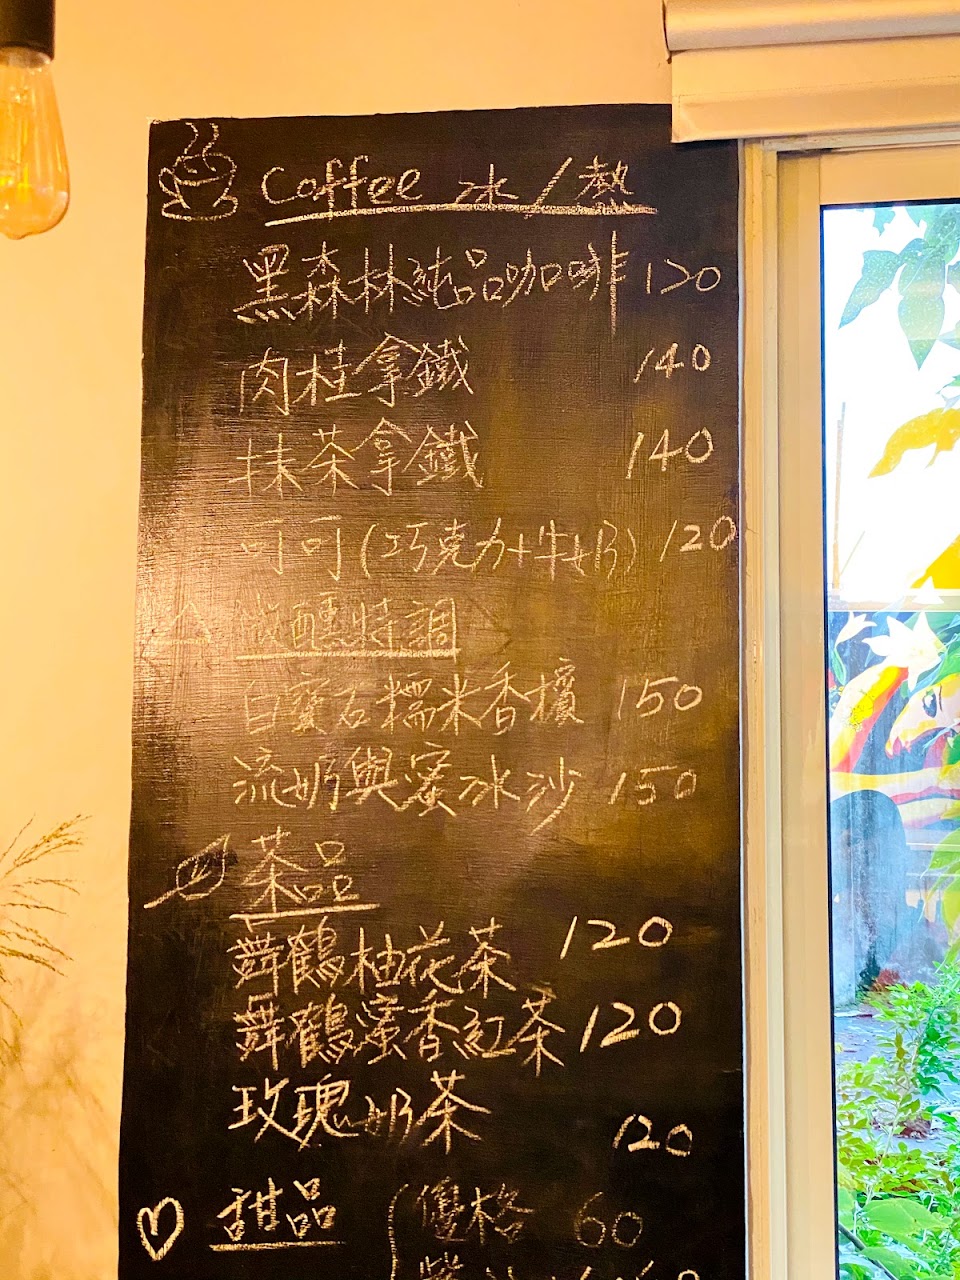 Coffee 冰/熱
黑森林純品咖啡 120
肉桂拿鐵 140
抹茶拿鐵 140
可可(巧克力+牛奶) 120
微醺特調
白寶石糯米香檳 150
流奶與蜜冰沙 150
茶品
舞鶴柚花茶 120
舞鶴蜜香紅茶 120
玫瑰奶茶 120
甜品 優格 60